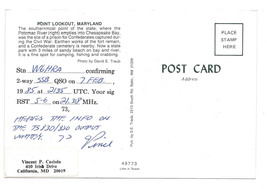 POINT LOOKOUT, MARYLAND
The southernmost point of the state, where the
Potomac River (right) empties into Chesapeake Bay,
was the site of a prison for Confederates captured during
the Civil War. Earthen works of the fort remain,
and a Confederate cemetery is nearby. Now a state
park with 3 miles of sandy beach on the bay and river
for swimming and fishing.
Photo by David E. Traub
Stn W6HRA confirming
2-way SSB QSO on 7 FEB
1985 at 2135 UTC. Your sig
RST 5-6 on 21.38 MHz.
73,
HERES THE INFO ON
THE TS120/130 OUTPUT
Vince
Vincent P. Casiola
410 Irish Drive
California, MD 20619
POST CARD
Address
49773
PLACE
STAMP
HERE